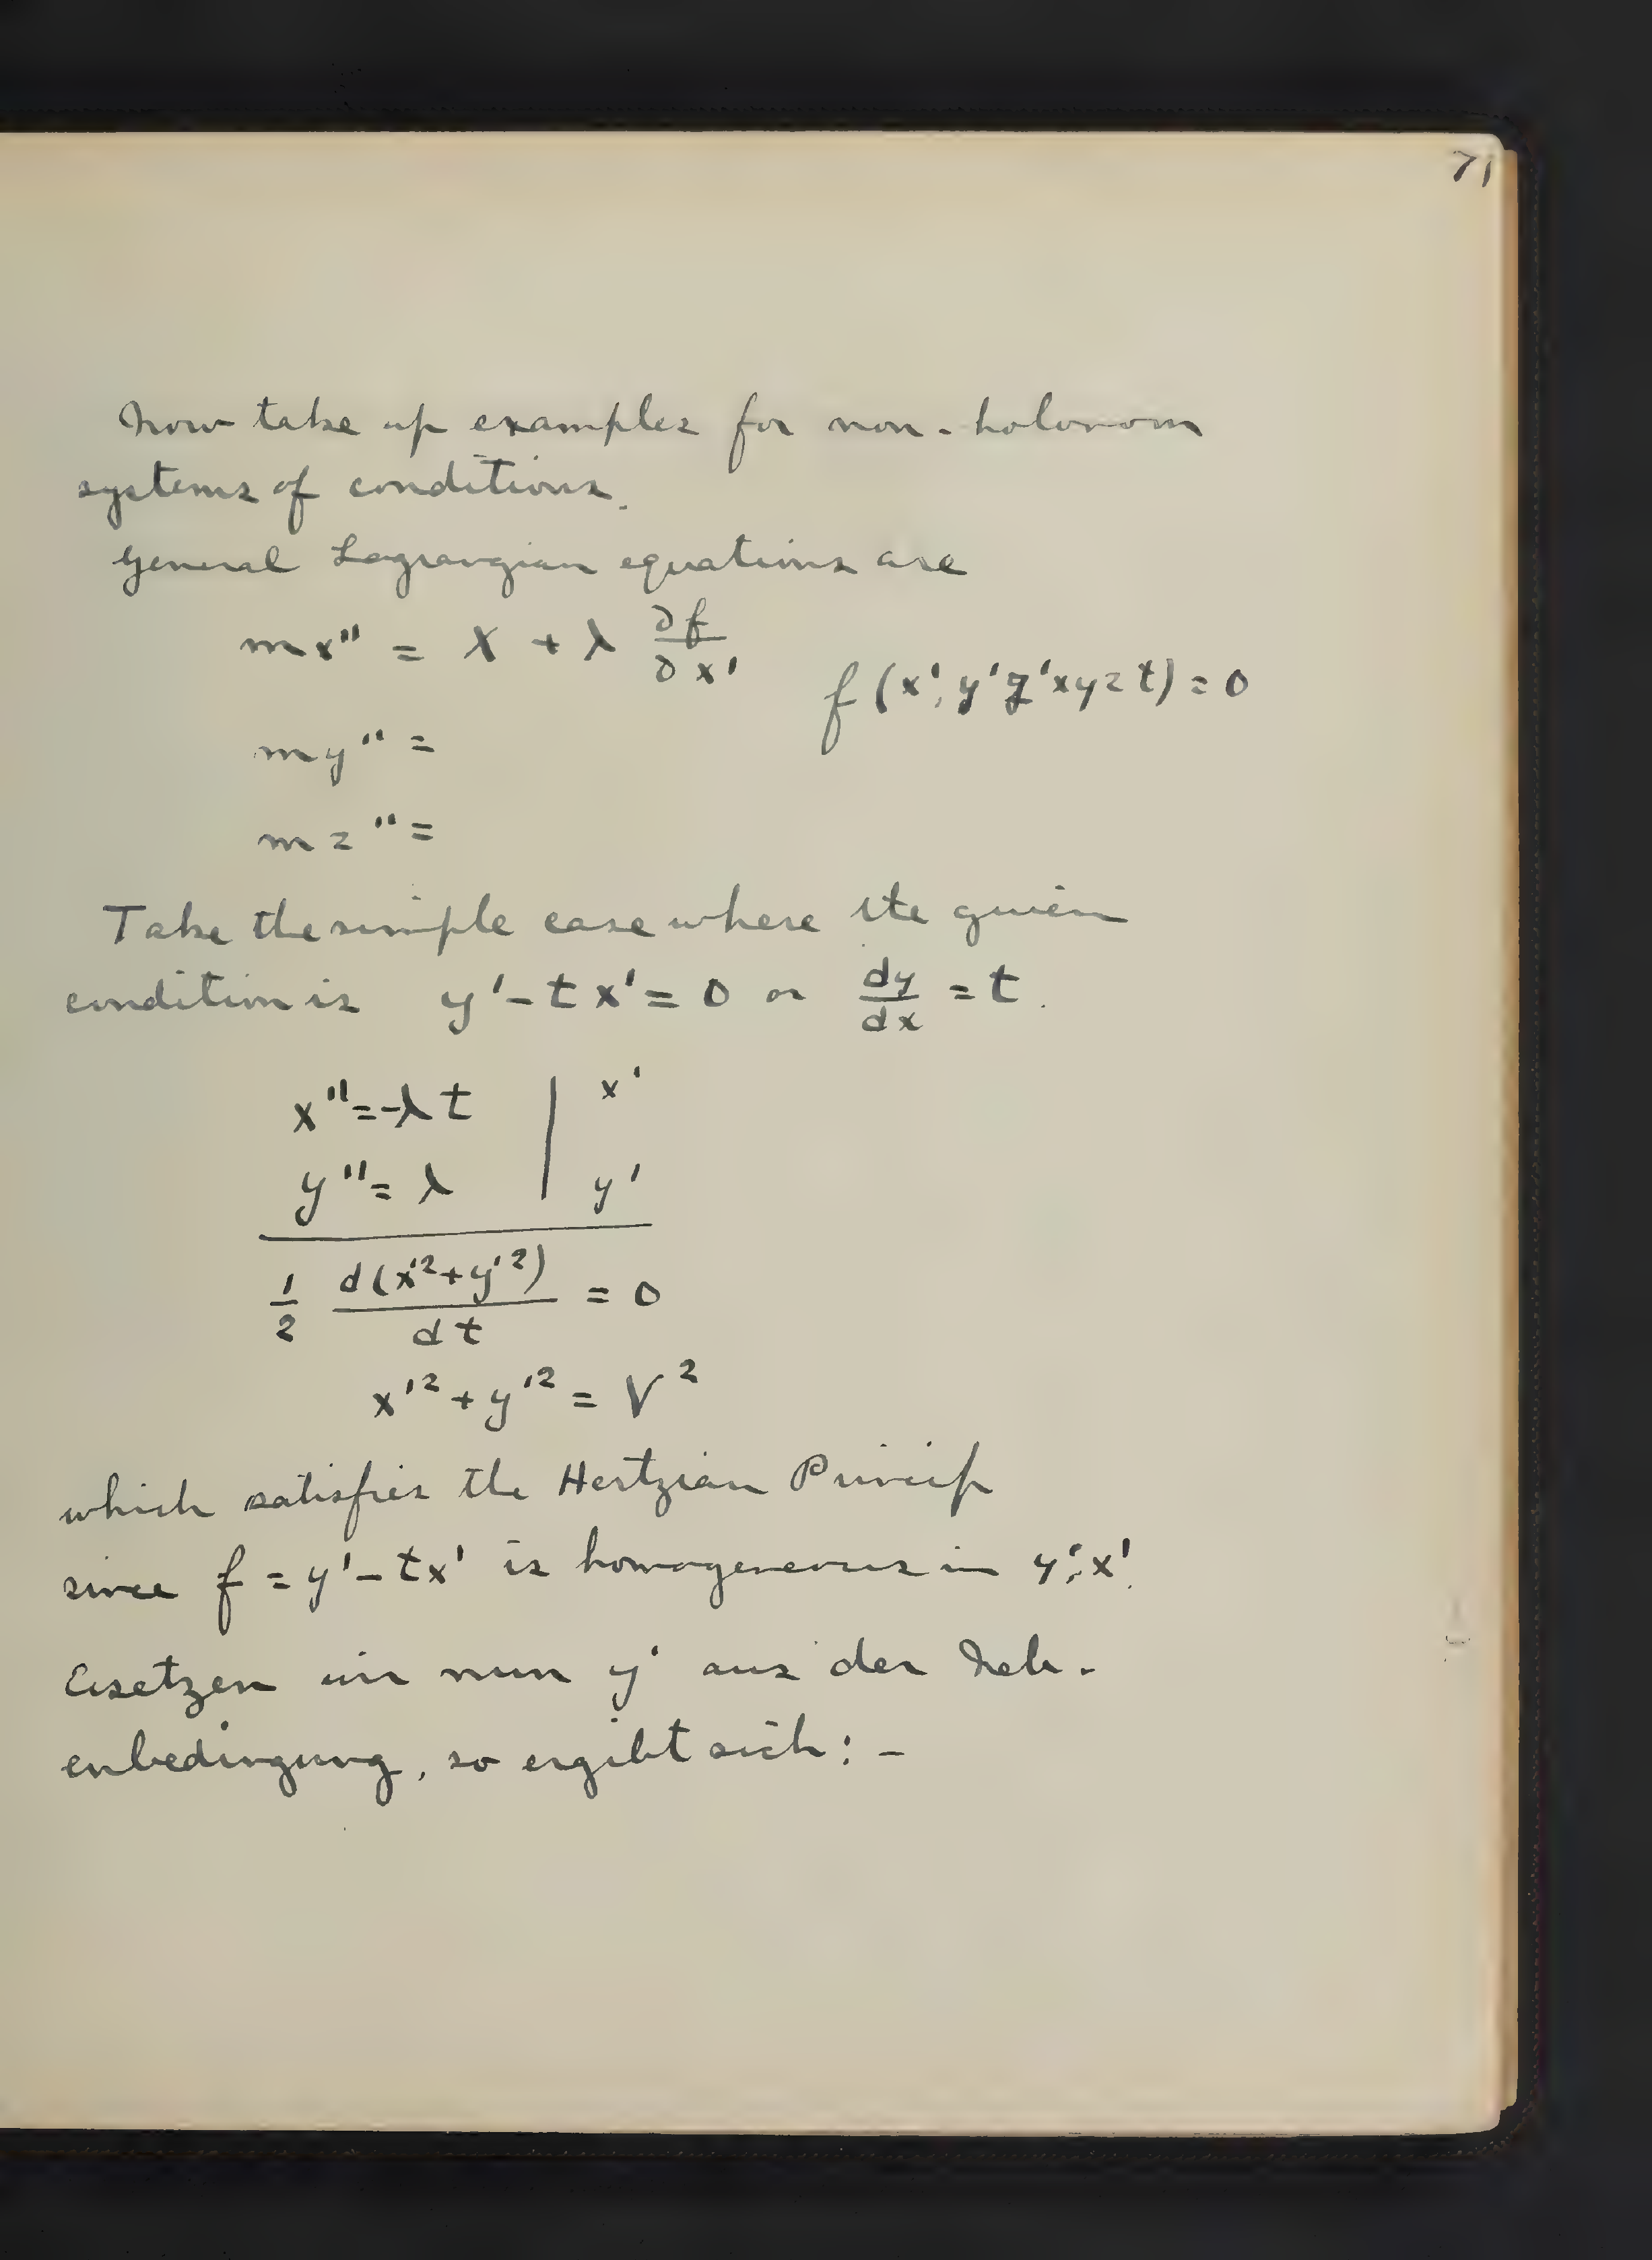 71
Now take up examples for non-holonom
systems of conditions.
General Lagrangian equations are
mx'' = X + λ ∂f/∂x'
f(x', y' z' x y z t) = 0
my'' =
mz'' =
Take the simple case where the given
condition is y' - tx' = 0 or dy/dx = t.
x'' = -λt | x'
y'' = λ | y'
1/2 d(x'² + y'²)/dt = 0
x'² + y'² = V²
which satisfies the Hertzian Princip
since f = y' - tx' is homogeneous in y', x'.
Ersetzen wir nun y' aus der Neb-
enbedingung, so ergibt sich: -